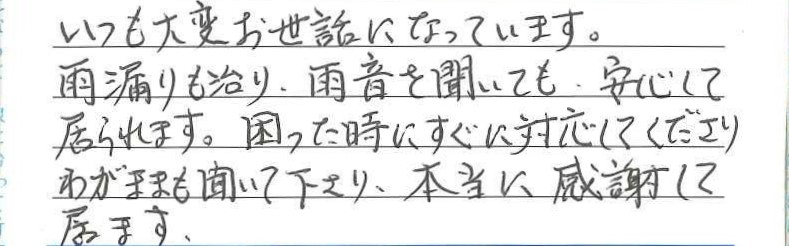 いつも大変お世話になっています。
雨漏りも治り、雨音を聞いても、安心して
居られます。困った時にすぐに対応してくださり
わがままも聞いて下さり、本当に感謝して
居ます、